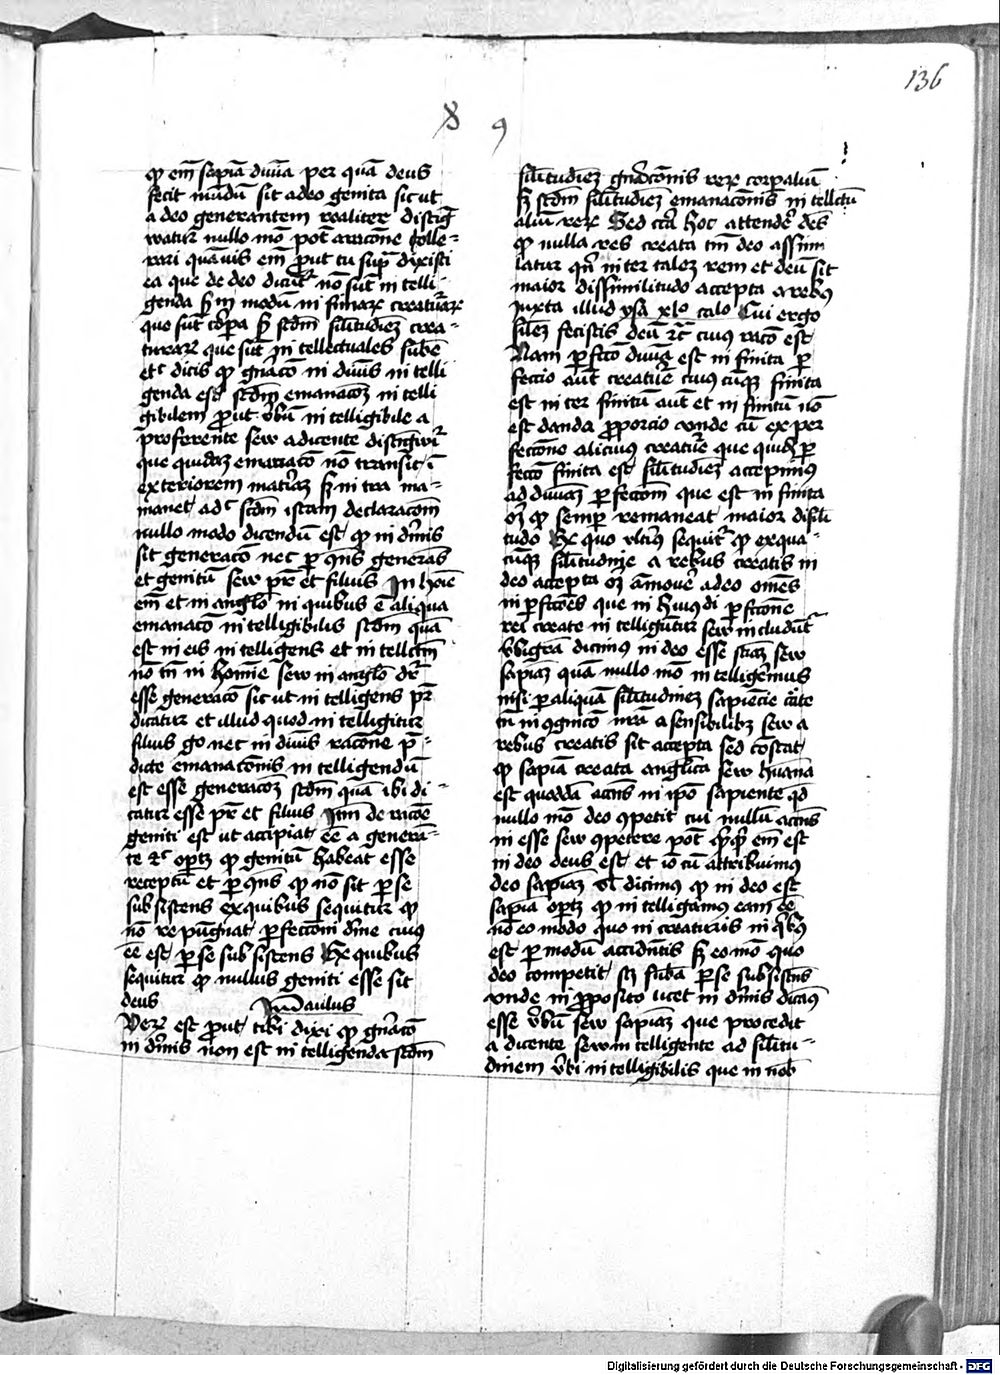 136
8 9
qp em̄ sapiā diuīa per quā deus
fecit mūdū sit a deo genita sicut
a deo generantem realiter distīg
watur nullo mō pot̄ a racōne tolle-
rari quāuis em̄ put tu sup̄ dixisti
ea que de deo dicūt᷑ nō sūt intelli
genda ẜm modū infimaꝝ creaturaꝝ
que sūt corp̄a ẜ ẜcdm̄ silitudīeꝫ crea-
turaꝝ que sūt intellectuales subē
etc̄ dicis ꝙ gn̄acō in diuīs intelli
genda est ẜcdm̄ emanacōeꝫ intelli
gibilem ꝓut v̄bū intelligibile a
proferente sew a dicente distīgwit᷑
que quideꝫ emanacō nō transit ī
exteriorem mat̄iaꝫ ẜ intra ma-
manet adc̄ ẜcdm̄ istam declaracōem
nullo modo dicendū est ꝙ in dīnis
sit generacō nec ꝑ ꝯn̄s generās
et genitū sew pr̄ et filius In hoīe
em̄ et in anglo in quibus ē aliqua
emanacō intelligibilis ẜcdm̄ quā
est in eis intelligens et intellctm̄
nō tn̄ in homine sew in anglo dr̄
esse generacō sicut intelligens pr̄
dicatur et illud quod intelligitur
filius go nec in diuīs racōne p̄-
dicte emanacōnis intelligendū
est esse generacōꝫ ẜcdm̄ quā ibi di-
catur esse pr̄ et filius Itm̄ de racōe
geniti est ut accipiat eē a generā-
te etc̄ oportꝫ ꝙ genitū habeat esse
receptū et ꝑ ꝯn̄s ꝙ nō sit ꝑ se
subsistens ex quibus sequitur ꝙ
nō repūgnat ꝑfectōni dīne cuius
eē est ꝑ se subsistens Ex quibus
sequitur ꝙ nullus geniti esse sit
deus
Paulus
Veꝝ est ꝓut tibi dixi ꝙ gn̄acō
in dīnis non est intelligenda ẜcdm̄
silitudīeꝫ gn̄acōnis reꝝ corꝑaliū
ẜ ẜcdm̄ silitudīeꝫ emanacōnis intellctu
aliū reꝝ Sed cr̄a hoc attendē des
ꝙ nulla res creata tm̄ deo assimi
latur qn̄ inter taleꝫ rem et deū sit
maior dissimilitudo accepta a rebꝰ
Juxta illud ysā xlo calo Cui ergo
silem fecistis deū etc̄ cuius racō est
Nam ꝑfctō diuīa est infinita ꝑ
feccio aūt creatur̄e cuiuscūqꝫ finita
est inter finitū aut et infinitū nō
est danda ꝓporcio vnde cū ex ꝑ
fectōne alicuiꝰ creatur̄e que quideꝫ ꝑ
fectō finita est silitudīeꝫ accepimꝰ
ad diuinā ꝑfectōem que est infinita
oꝫ ꝙ semꝑ remaneat maior disili
tudo Ex quo vltiꝰ sequit᷑ ꝙ ex qua-
cūqꝫ silitudīe a rebus creatis in
deo accepta oꝫ āmouē a deo omēs
inꝑfctōes que in huiꝰmodi ꝑfctōne
rei create intelligūtur sew includūt᷑
v̄bigrā dicimꝰ in deo esse sciaꝫ sew
sapiaꝫ quā nullo mō intelligimus
nisi ꝑ aliquā silitudineꝫ sapiencie cāte
cū in ꝯgnicō nrā a sensibilibꝫ sew a
rebus creatis sit accepta sed cōstat
ꝙ sapiā creata anglīca sew hūana
est quodda accn̄s in ipō sapiente qd
nullo mō deo ꝯpetit cui nullū accn̄s
inesse sew ꝯpetere pot̄ qr qcqd em̄ est
in deo deus est et iō cū attribuimꝰ
deo sapiaꝫ vl̄ dicimꝰ ꝙ in deo est
sapiā oportꝫ ꝙ intelligamꝰ eam eē
nō eo modo quo in creaturis in qbꝰ
est ꝑ modū accidn̄tis ẜ eo mō quo
deo competit scꝫ substācia ꝑ se subsistēs
vnde in ꝓposito licet in dīnis dicaꝰ
esse v̄bū sew sapiaꝫ que procedit
a dicente sew intelligente ad silitu-
dinem v̄bi intelligibilis que in nob̄
Digitalisierung gefördert durch die Deutsche Forschungsgemeinschaft - DFG